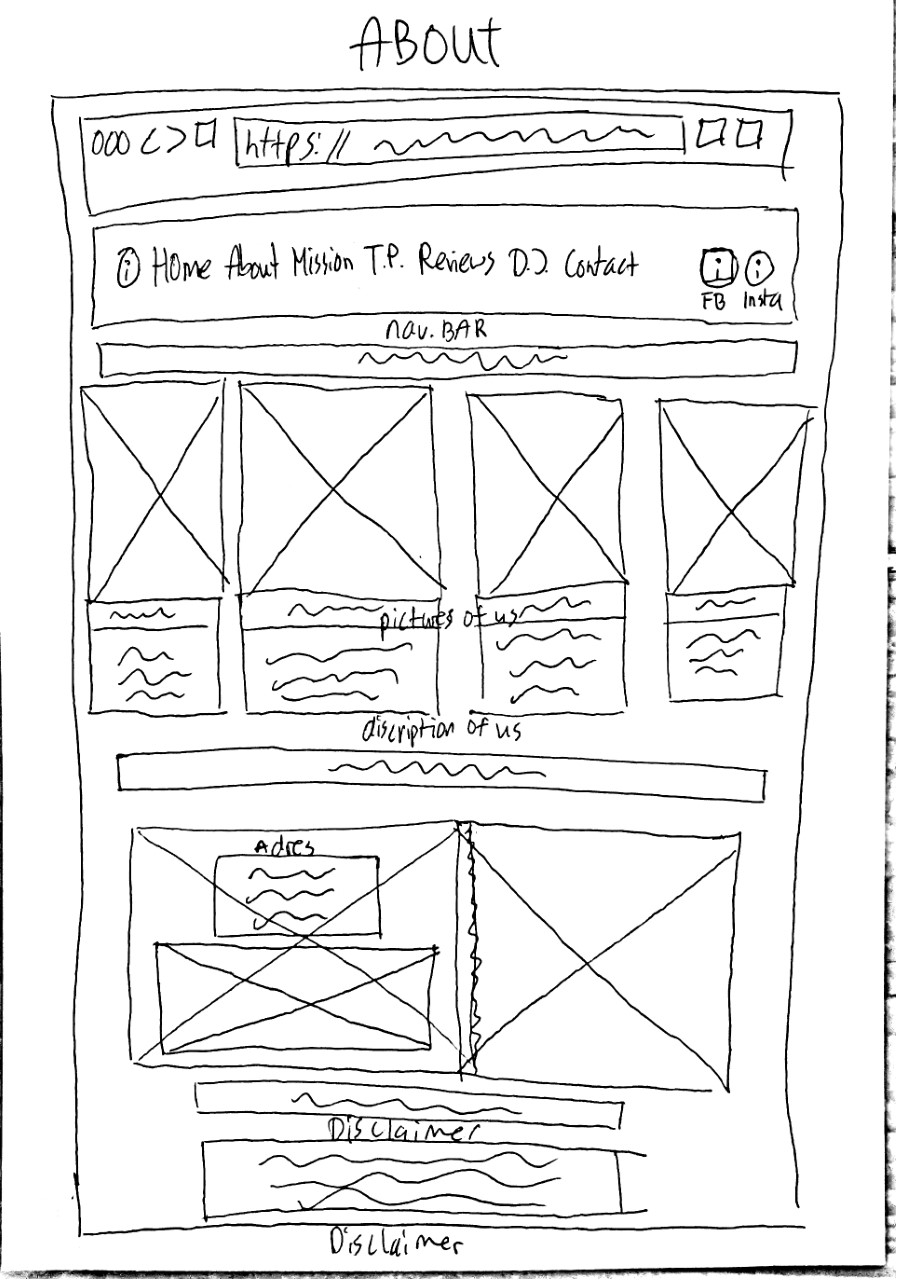 ABOUT
https://
Home About Mission T.P. Reviews D.D. Contact
FB Insta
nav. BAR
pictures of us
discription of us
Adres
Disclaimer
Disclaimer